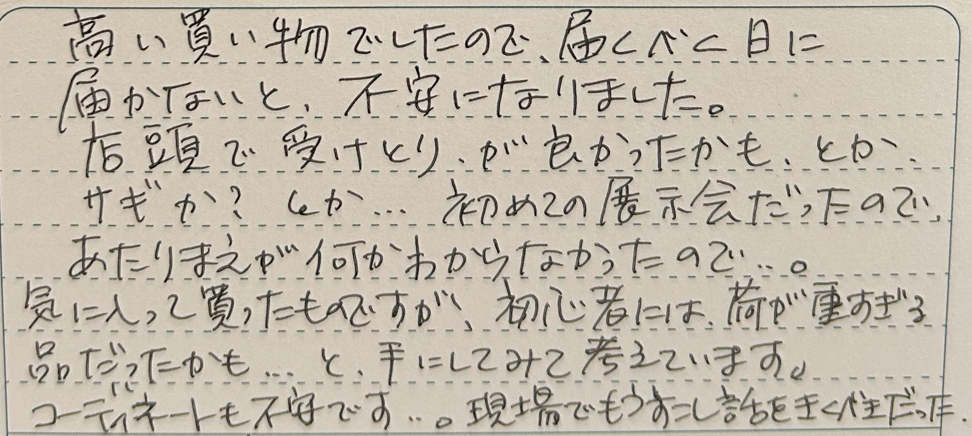 高い買い物でしたので、届くべく日に
届かないと、不安になりました。
店頭で受けとり、が良かったかも、とか、
サギか？とか… 初めての展示会だったので、
あたりまえが何かわからなかったので…。
気に入って買ったものですが、初心者には、荷が重すぎる
品だったかも… と、手にしてみて考えています。
コーディネートも不安です…。現場でもうすこし話をきくべきだった.